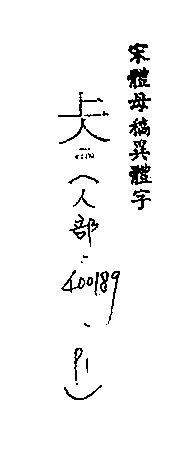 宋體母稿異體字
仧(人部、400189、P1)